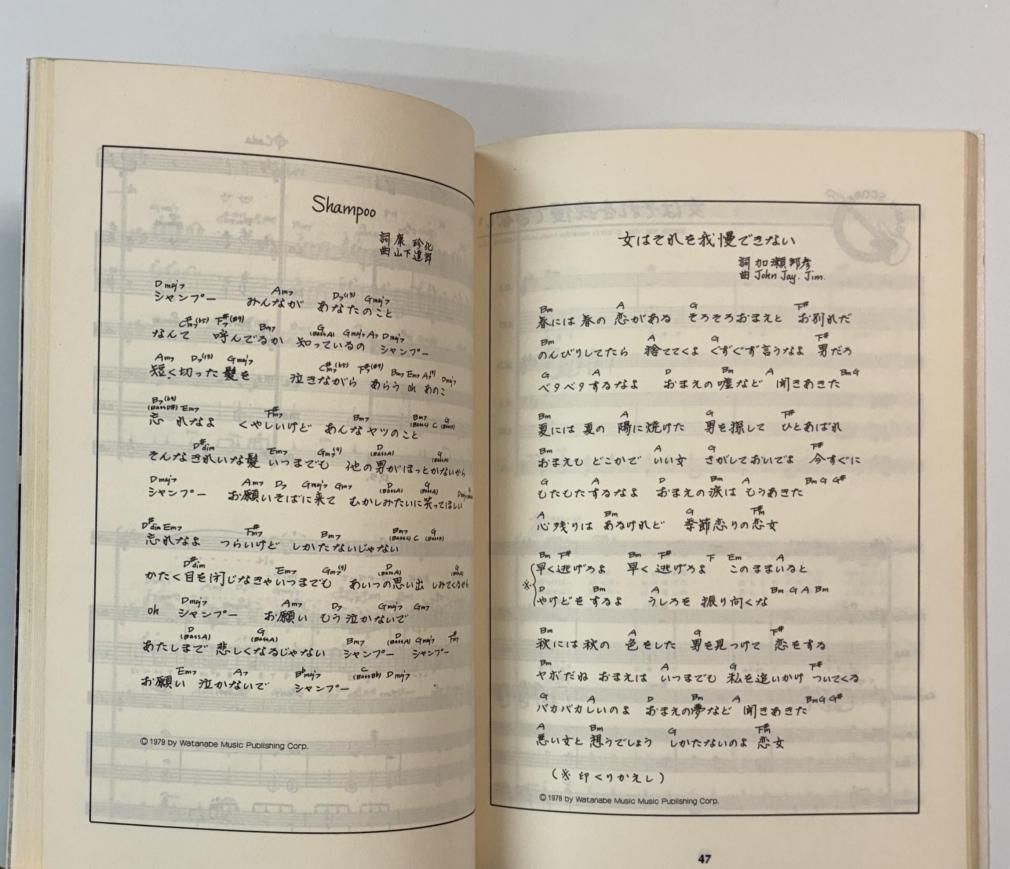 Shampoo
詞 康 珍化
曲 山下達郎
Dmaj7 Am7 D7(13) Gmaj7
シャンプー みんなが あなたのこと
C#m7(♭5) F#7(#9) Bm7 G(BassA) Gmaj7 A7 Dmaj7
なんて 呼んでるか 知っているの シャンプー
Am7 D7(13) Gmaj7 C#m7(♭5) F#7(#9) Bm7 Em7 Dmaj7
短く切った 髪を 泣きながら あらう oh あのこ
Em7 F#m7 Bm7 Bm7 C
忘れなよ くやしいけど あんなヤツのこと
D#dim Em7 Gm7(9) D(BassA) G(BassA)
そんなきれいな髪 いつまでも 他の男がほっとかないから
Dmaj7 Am7 D7 Gmaj7 Gm7 D(BassA) G(BassA)
シャンプー お願いそばに来て むかしみたいに笑ってほしい
D#dim Em7 F#m7 Bm7 Bm7 C
忘れなよ つらいけど しかたないじゃない
D#dim Em7 Gm7(9) D(BassA) G(BassA)
かたく目を閉じなきゃいつまでも あいつの思い出 しみてくるから
Dmaj7 Am7 D7 Gmaj7 Gm7
oh シャンプー お願い もう泣かないで
D(BassA) G(BassA) Bm7 D(BassA) Gmaj7
あたしまで 悲しくなるじゃない シャンプー シャンプー
Em7 A7 B♭maj7 C Dmaj7
お願い 泣かないで シャンプー
© 1979 by Watanabe Music Publishing Corp.
女はそれを我慢できない
詞 加瀬邦彦
曲 John Jay. Jim.
Bm A G F#
春には 春の 恋がある そろそろおまえと お別れだ
Bm A G F#
のんびりしてたら 捨ててくよ ぐずぐず言うなよ 男だろ
G A D Bm A Bm G
ベタベタするなよ おまえの嘘など 聞きあきた
Bm A G F#
夏には 夏の 陽に焼けた 男を探して ひとあばれ
Bm A G F#
おまえも どこかで いい女 さがしておいでよ 今すぐに
G A D Bm A Bm G G#
もたもたするなよ おまえの涙は もうあきた
A Bm G F#
心残りは あるけれど 季節変りの恋女
Bm F# Bm F# F Em A
早く逃げろよ 早く逃げろよ このままいると
※
D A Bm G A Bm
やけどをするよ うしろを 振り向くな
Bm A G F#
秋には 秋の 色をした 男を見つけて 恋をする
Bm A G F#
ヤボだね おまえは いつまでも 私を追いかけ ついてくる
G A D Bm A Bm G G#
バカバカしいのよ おまえの夢など 聞きあきた
A Bm G F#
悪い女と 想うでしょう しかたないのよ 恋女
(※印くりかえし)
© 1978 by Watanabe Music Music Publishing Corp.
47